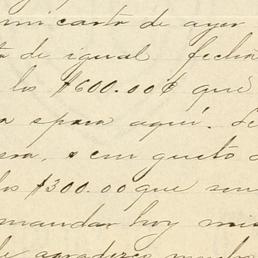 mi carta de ayer
de igual fecha
los $600.00 que
aquí. Le
con gusto
los $300.00 que son
mandar hoy mis
agradezco mucho